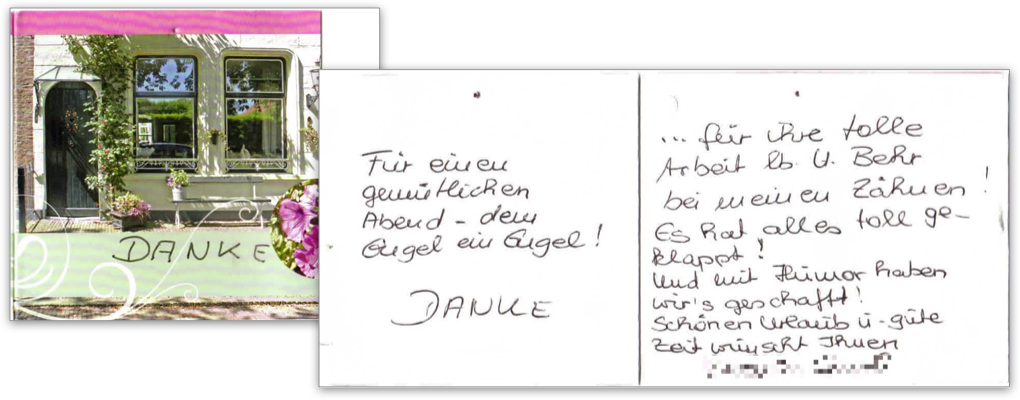 DANKE
Für einen
gemütlichen
Abend - dem
Engel ein Engel!
DANKE
... für Ihre tolle
Arbeit lb. U. Behr
bei meinen Zähnen!
Es hat alles toll ge-
klappt!
Und mit Humor haben
wir's geschafft!
Schönen Urlaub u - gute
Zeit wünscht Ihnen